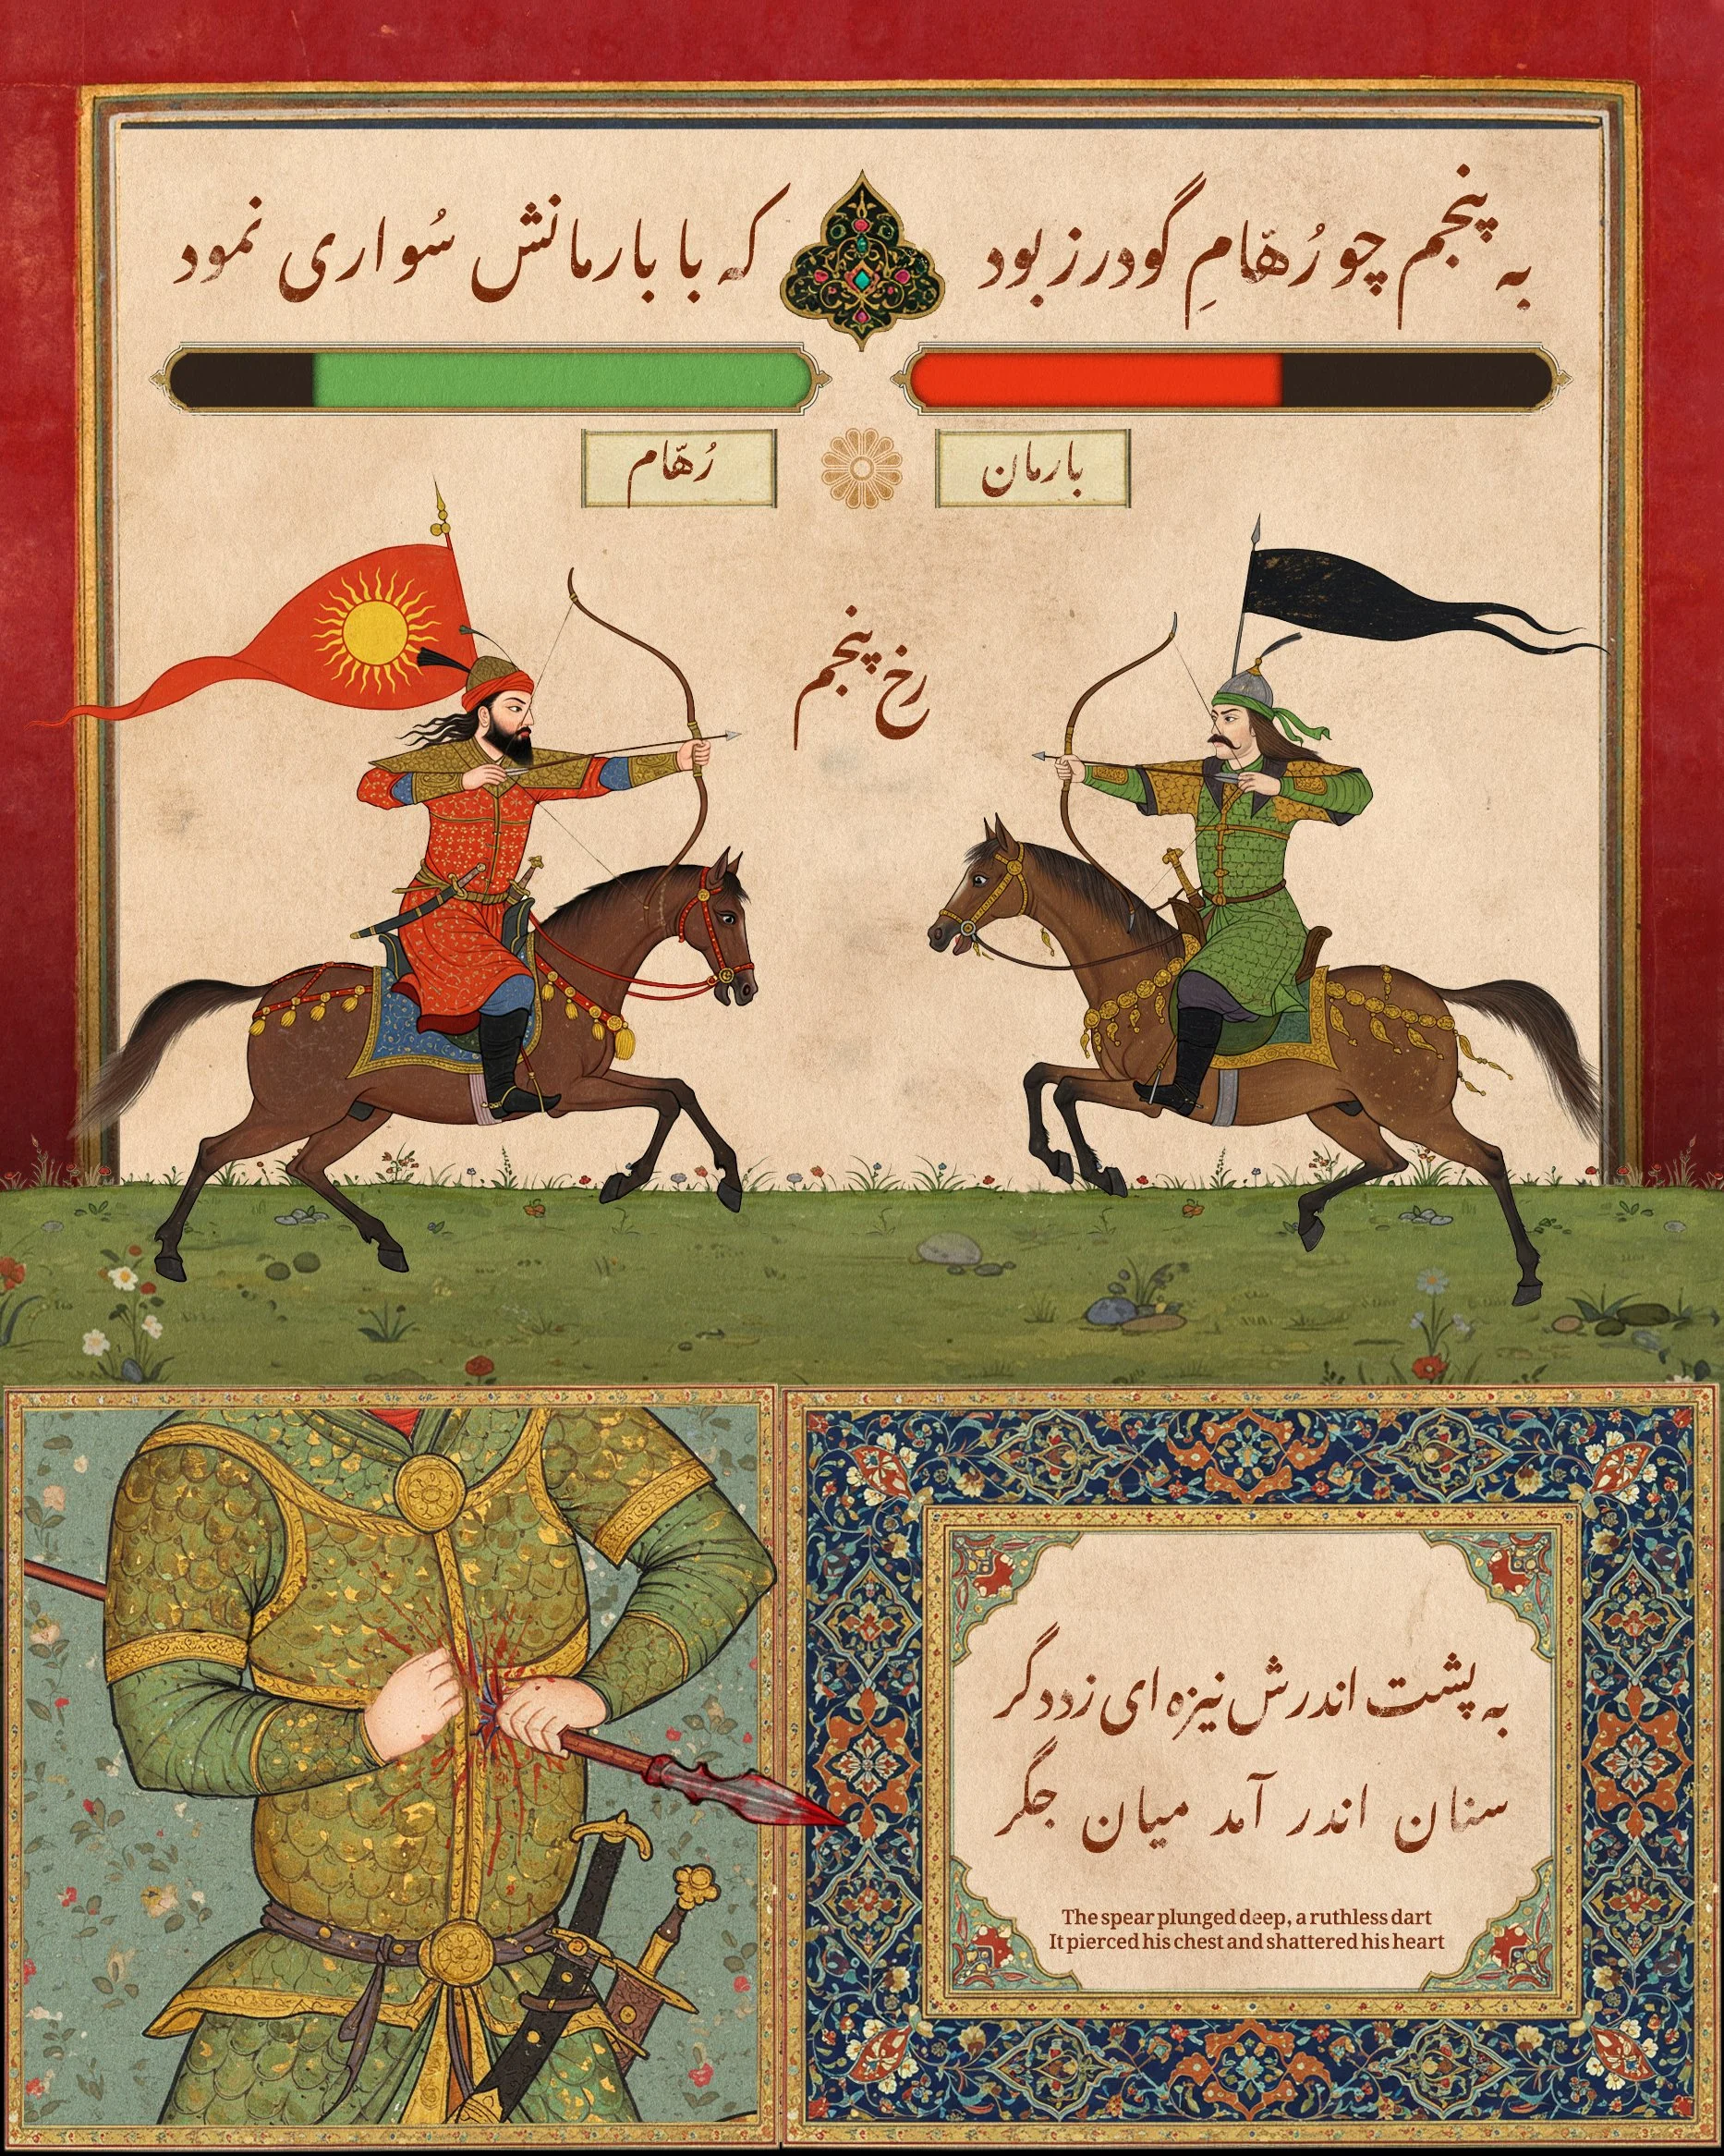 به پنجم چو رُهّامِ گودرز بود
که با بارمانش سُواری نمود
رُهّام
بارمان
رخ پنجم
به پشت اندرش نیزه ای زد دگر
سنان اندر آمد میان جگر
The spear plunged deep, a ruthless dart
It pierced his chest and shattered his heart